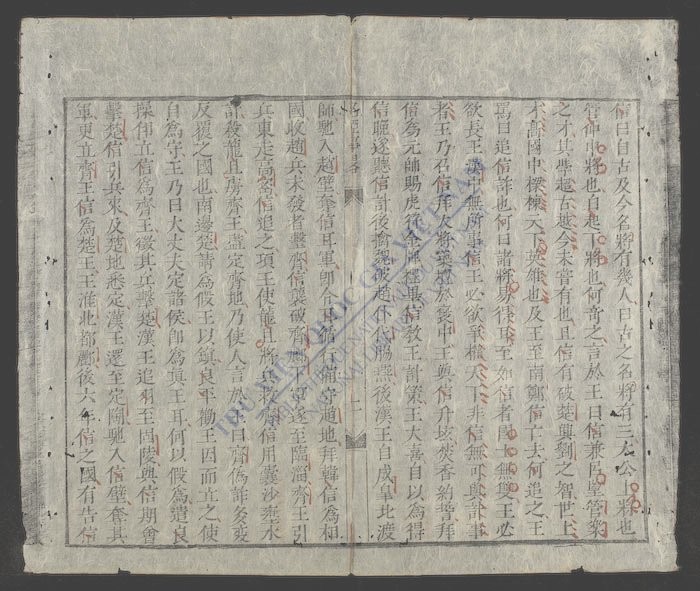 信曰自古及今名將有幾人曰古之名將有三人公上將也
管仲中將也自起下將也何奇之言於王曰信兼呂望管樂
之才其學超古越今未嘗有也且信有破楚興劉之智世上
才高國中樑棟天下英雄也及王至南鄭信亡去何追之王
罵曰追信詐也何曰諸將易得耳至如信者國士無雙王必
欲長王漢中無所事信王必欲爭權天下非信無可與計事
者王乃召信拜大將築壇於漢中王與信升坛焚香納幣拜
信為元帥賜虎符金牌禮畢信教王計策王大喜自以為得
信晚遂聽信計後擒魏破趙仆代脇燕後漢王自成皐北渡
師馳入趙壁奪信耳軍即令耳循行備守趙地拜韓信為相
國收趙兵未發者擊齊信襲破齊歷下軍遂至臨淄齊王引
兵東走高密信追之項王使龍且將兵救齊信用囊沙壅水
計殺龍且虜齊王盡定齊地乃使人言於王曰齊偽詐多变
反覆之國也南邊楚請為假王以鎮良平勸王因而立之使
自為守王乃曰大丈夫定諸侯即為真王耳何以假為遣良
操印立信為齊王徵其兵擊楚漢王追羽至固陵與信期會
擊楚信引兵來及楚地悉定漢王還至定陶馳入信壁奪其
軍更立齊王信為楚王王淮北都下邳後六年信之國有告信